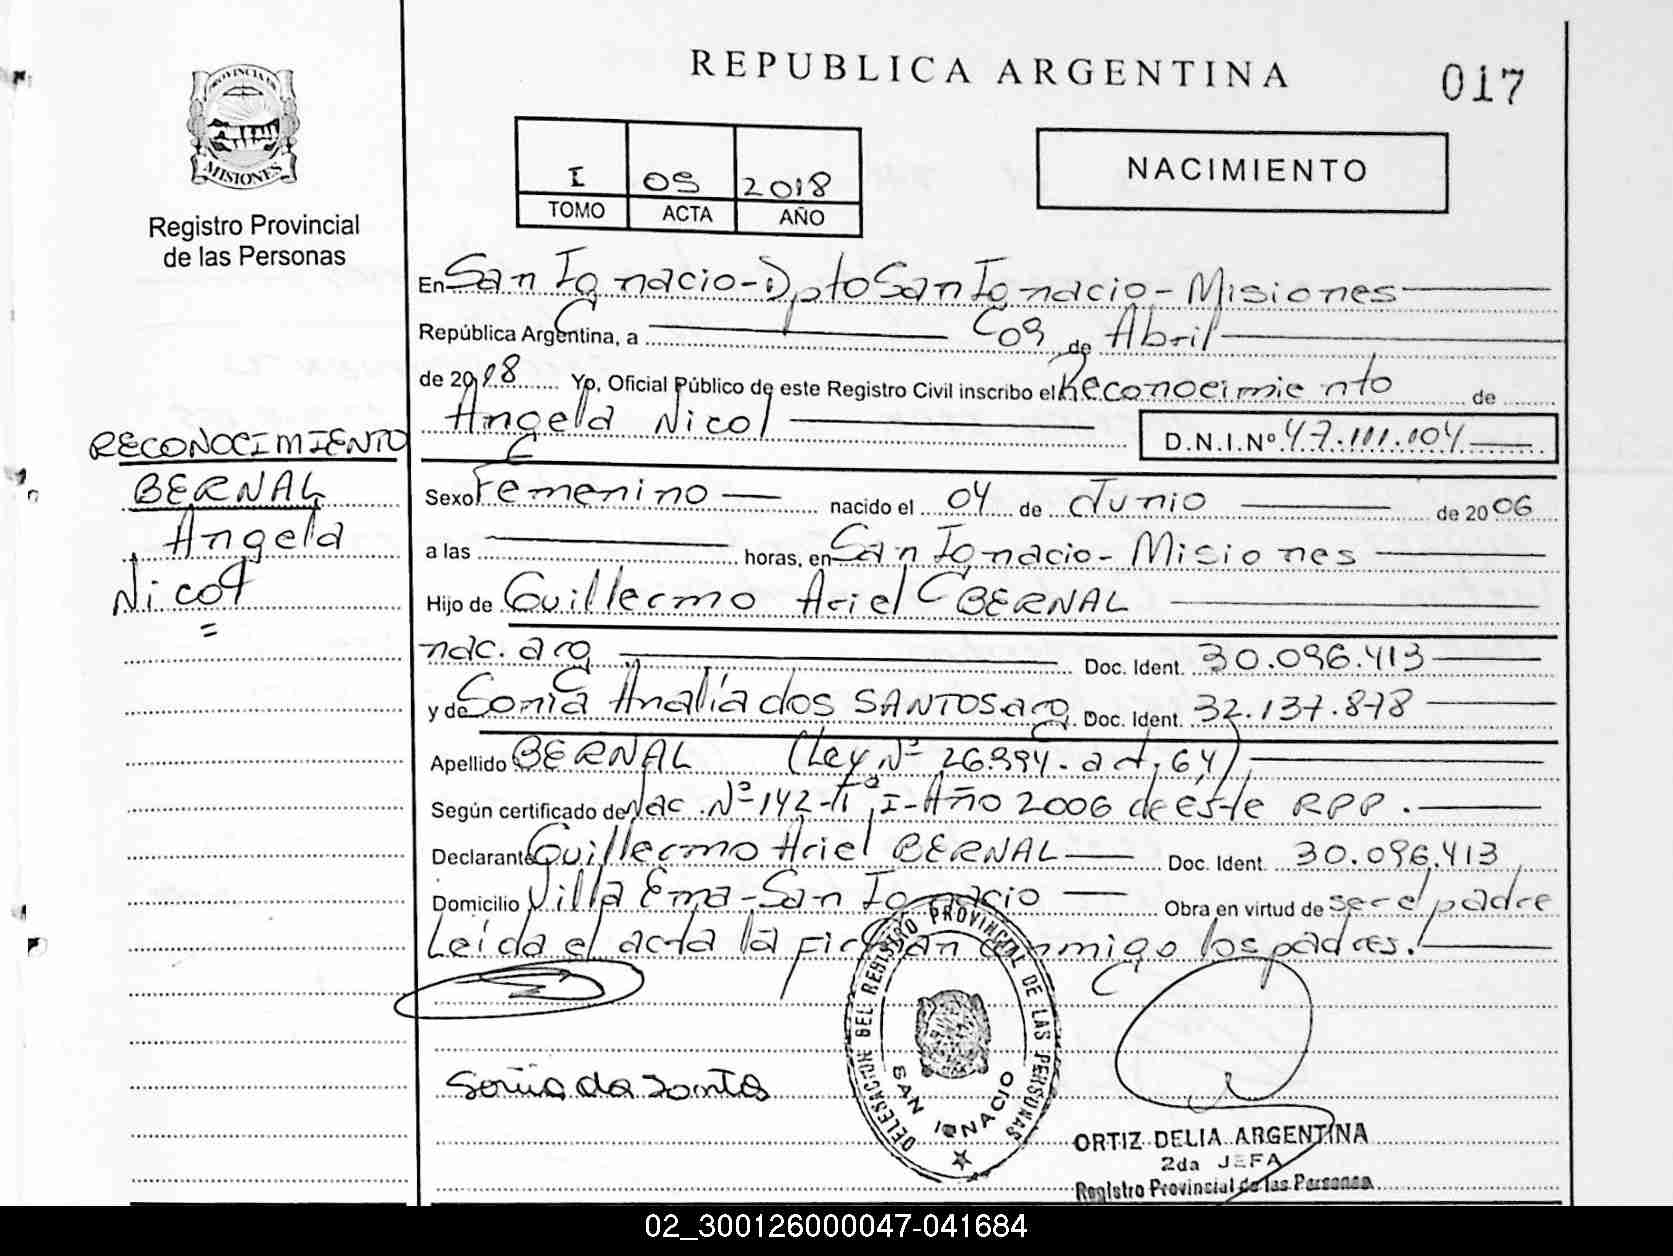 REPUBLICA ARGENTINA
017
PROVINCIA DE
MISIONES
Registro Provincial
de las Personas
I 09 2018
TOMO ACTA AÑO
NACIMIENTO
En San Ignacio - Dpto San Ignacio - Misiones
República Argentina, a 09 de Abril
de 2018 Yo, Oficial Público de este Registro Civil inscribo el Reconocimiento de
Angela Nicol D.N.I.Nº 47.111.104
RECONOCIMIENTO
BERNAL
Angela
Nicol
Sexo Femenino nacido el 04 de Junio de 2006
a las horas, en San Ignacio - Misiones
Hijo de Guillermo Ariel BERNAL
nac. arg Doc. Ident. 30.096.413
y de Sonia Analía dos SANTOS arg. Doc. Ident. 32.137.878
Apellido BERNAL (Ley Nº 26.994. art. 64)
Según certificado de Nac. Nº 142 - Tº I - Año 2006 de este RPP.
Declarante Guillermo Ariel BERNAL Doc. Ident. 30.096.413
Domicilio Villa Ema - San Ignacio Obra en virtud de ser el padre
Leída el acta la firman conmigo los padres.
DELEGACION DEL REGISTRO PROVINCIAL DE LAS PERSONAS
SAN IGNACIO
Sonia do Santos
ORTIZ DELIA ARGENTINA
2da JEFA
Registro Provincial de las Personas
02_300126000047-041684